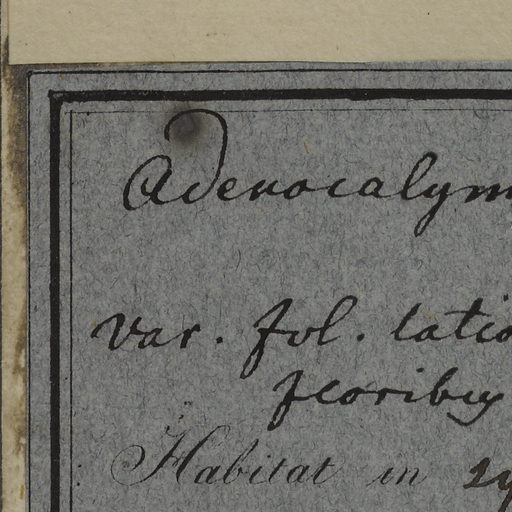 Adenocalym
var. fol. latio
floribus
Habitat in sy